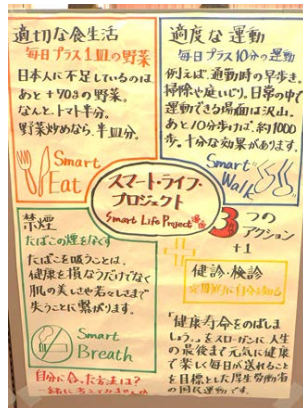 適切な食生活
毎日プラス1皿の野菜
日本人に不足しているのは
あと+70gの野菜。
なんと、トマト半分。
野菜炒めなら、半皿分。
Smart
Eat
適度な運動
毎日プラス10分の運動
例えば、通勤時の早歩き。
掃除や庭いじり。日常の中で
運動できる場面は沢山。
あと10分歩けば、約1000
歩。十分な効果があります。
Smart
Walk
スマート・ライフ・
プロジェクト
Smart Life Project
禁煙
たばこの煙をなくす
たばこを吸うことは、
健康を損なうだけでなく
肌の美しさや若々しさまで
失うことに繋がります。
Smart
Breath
自分に合った方法は?
一緒に考えてみませんか
3つの
アクション
+1
健診・検診
定期的に自分を知る
「健康寿命をのばしま
しょう。」をスローガンに、人生
の最後まで元気に健康
で楽しく毎日が送れること
を目標とした厚生労働省
の国民運動です。